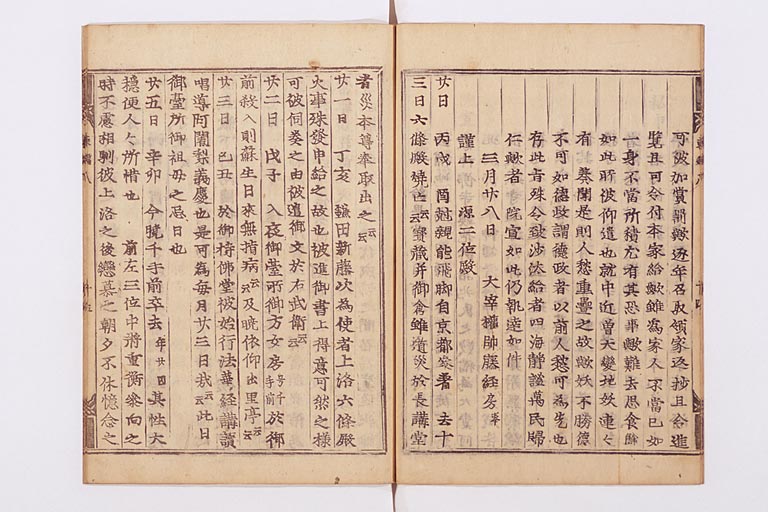 可被加賞翫歟逐年召取領家返抄且令進
覧且可令付本家給歟雖為家人不當已如
一身不當所積尤有其恐事歟難去思食餘
如此所被仰遣也就中近曽天変地妖連々
有蔡聞是則人愁重畳之故歟妖不勝德
不可如德政謂德政者以散人愁可為先也
存此旨殊令致沙汰給者四海静謐萬民歸
仁歟者院宣如此仍執達如件
三月廿八日 大宰權帥藤経房奉
謹上 源二位殿
廿日 丙戌 因幡前司飛脚自京都参著 去十
三日六條殿燒亡云云寳蔵并御倉雖遁災於長講堂
者災本尊奉取出之云云
廿一日 丁亥 鎌田新藤次為使者上洛六條殿
火事殊發申給之故也被進御書上得意可然之様
可被伺奏之由被遣御文於右武衛云云
廿二日 戊子 入夜御臺所御方女房号千手前於御
前絶入則蘇生日来無指病云云及曉依仰出里亭云云
廿三日 己丑 於御持佛堂被始行法華経講讀
唱導阿闍梨義慶也是可為毎月廿三日式云云此日
御臺所御祖母之忌日也
廿五日 辛卯 今曉千手前卒去年廿四其性大
穏便人々所惜也 前左三位中將重衡参向之
時不慮相馴彼上洛之後戀慕之朝夕不休憶念之